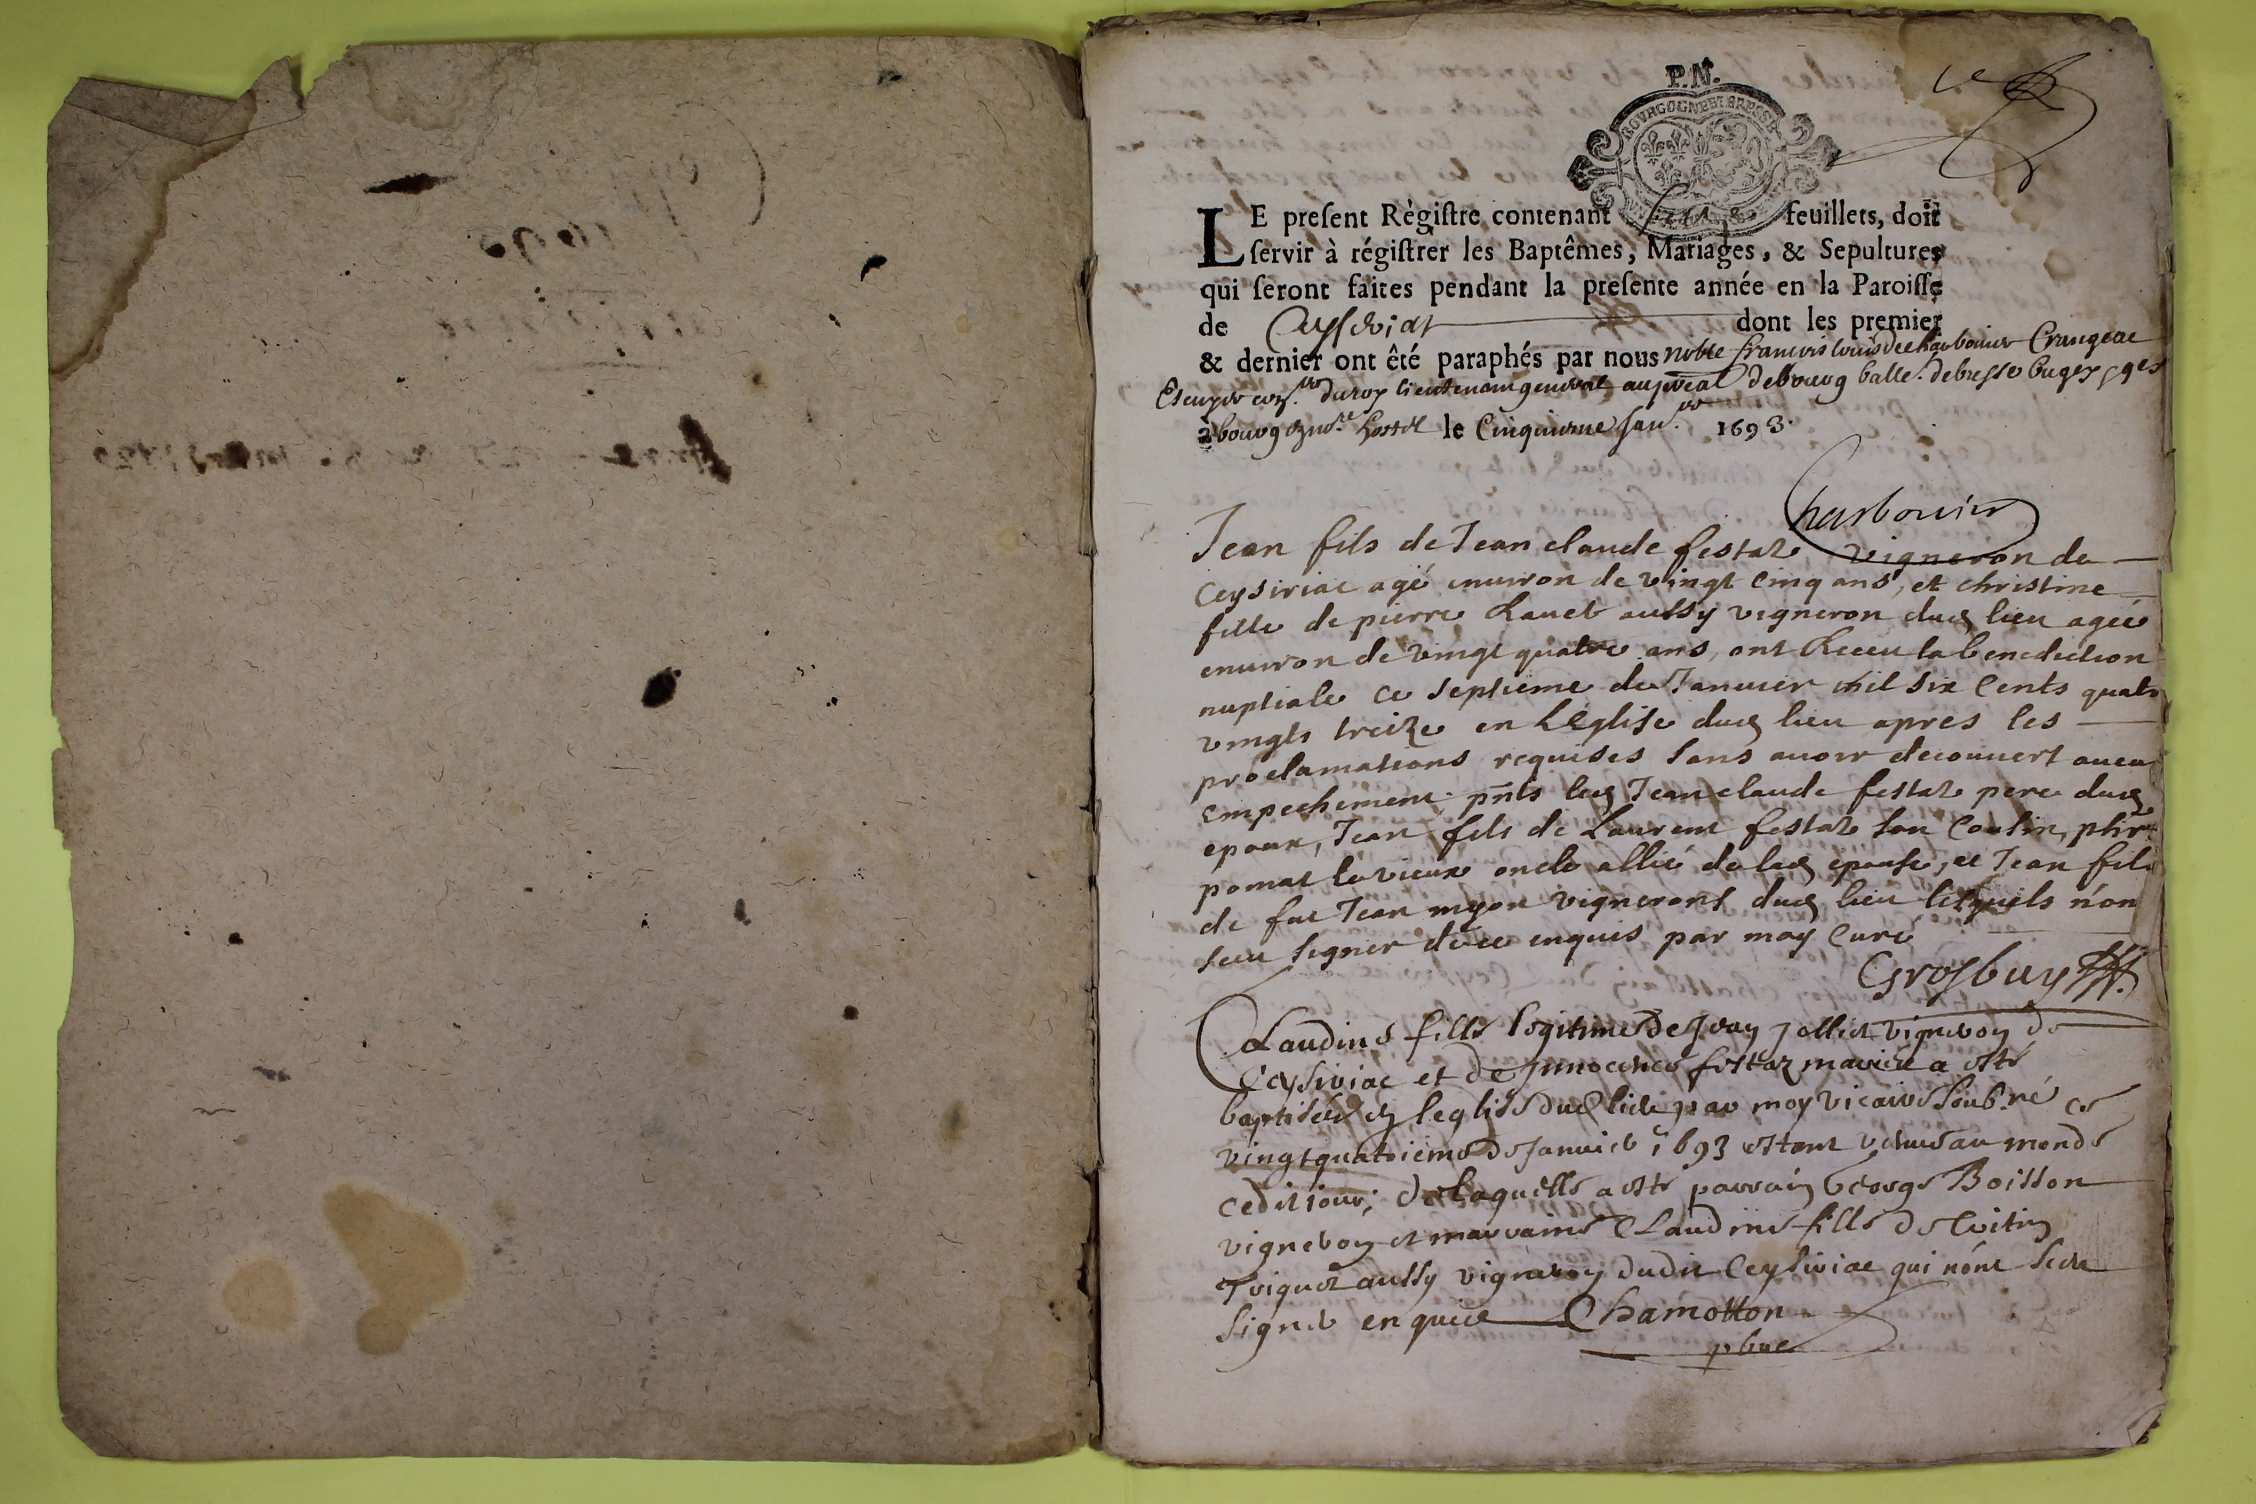 P.N.
BOURGOGNE ET BRESSE
LE present Régistre contenant feuillets, doit
servir à régistrer les Baptêmes, Mariages, & Sepultures
qui seront faites pendant la presente année en la Paroisse
de Ceyseriat dont les premier
& dernier ont êté paraphés par nous noble francois louis de charbonier Crangeac
Escuyer con.er du roy lieutenant general au pre.al de bourg balle. de bresse bugey & gex
à bourg en no.e hostel le Cinquieme Jan.er 1693.
Charbonier
Jean fils de Jean claude festaz vigneron de
Ceysiriac agé enuiron de vingt cinq ans, et christine
fille de pierre Rauet aussy vigneron dud lieu agée
enuiron de vingt quatre ans, ont Receu la benediction
nuptiale ce septieme de Januier mil six Cents quatre
vingts treize en L'Eglise dud lieu apres les
proclamations requises sans auoir decouuert aucun
empechement. pnts led Jean claude festaz pere dud
epoux, Jean fils de Laurent festaz son Cousin,
pomat le vieux oncle allié de lad epouse, et Jean fils
de fut Jean myon vignerons dud lieu lesquels n'on
sceu signer de ce enquis par moy Curé
Grosbuy
Claudine fille legitime de Jean Jollier vigneron de
Ceysiriac et de Innocence festaz mariée a esté
baptisée en leglise dud lieu par moy vicaire soub.né ce
vingt quatrieme de Januier 1693 estant venue au monde
cedit iour; de laquelle a esté parrain George Boisson
vigneron et marraine Claudine fille de
Triquet aussy vigneron dudit Ceysiriac qui n'ont sceu
signer enquis Chamotton
pbre